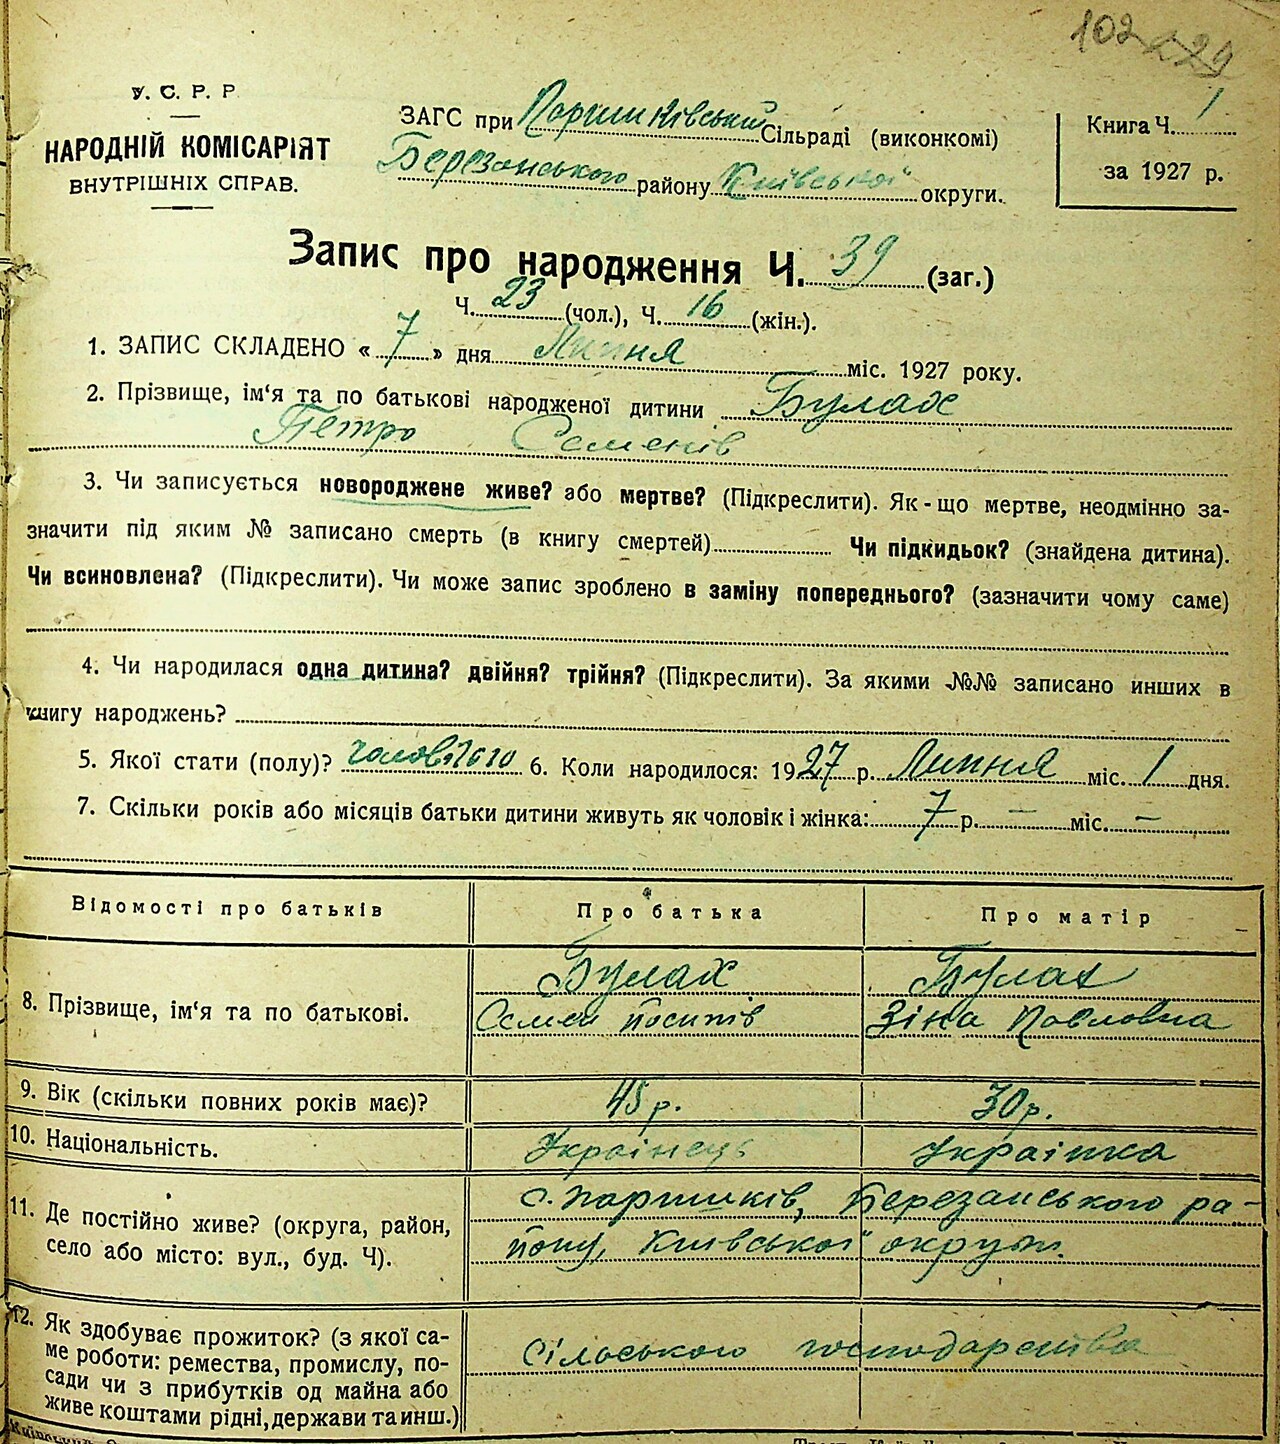 102 229
У. С. Р. Р
НАРОДНІЙ КОМІСАРІЯТ
ВНУТРІШНІХ СПРАВ.
ЗАГС при Паришківській Сільраді (виконкомі)
Березанського району Київської округи.
Книга Ч. 1
за 1927 р.
Запис про народження Ч. 39 (заг.)
Ч. 23 (чол.), Ч. 16 (жін.).
1. ЗАПИС СКЛАДЕНО « 7 » дня Липня міс. 1927 року.
2. Прізвище, ім'я та по батькові народженої дитини Булах
Петро Семенів
3. Чи записується новороджене живе? або мертве? (Підкреслити). Як-що мертве, неодмінно за-
значити під яким № записано смерть (в книгу смертей) Чи підкидьок? (знайдена дитина).
Чи всиновлена? (Підкреслити). Чи може запис зроблено в заміну попереднього? (зазначити чому саме)
4. Чи народилася одна дитина? двійня? трійня? (Підкреслити). За якими №№ записано инших в
книгу народжень?
5. Якої стати (полу)? чоловічого 6. Коли народилося: 1927 р. Липня міс. 1 дня.
7. Скільки років або місяців батьки дитини живуть як чоловік і жінка: 7 р. — міс. —
Відомості про батьків Про батька Про матір
8. Прізвище, ім'я та по батькові. Булах Булах
Семен Йосипів Зіна Павловна
9. Вік (скільки повних років має)? 45 р. 30 р.
10. Національність. Українець Українка
11. Де постійно живе? (округа, район, село або місто: вул., буд. Ч). с. Паришків, Березанського ра-
йону, Київської округи.
12. Як здобуває прожиток? (з якої са-
ме роботи: ремества, промислу, по-
сади чи з прибутків од майна або
живе коштами рідні, держави та инш.) сільського господарства